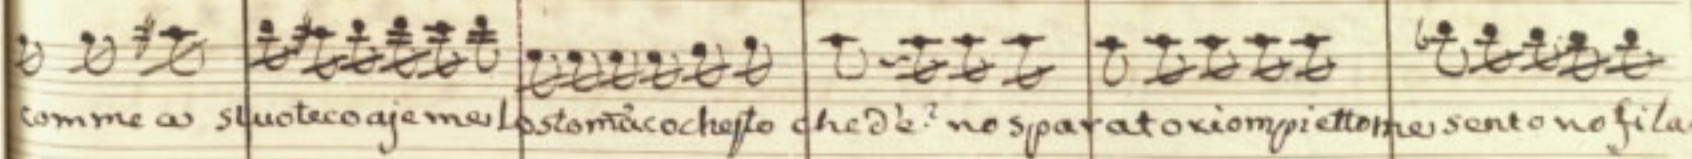 comme a sbuoteco aje me lo stomãco chesto che d'è? no sparatorio mpietto me sento no fila